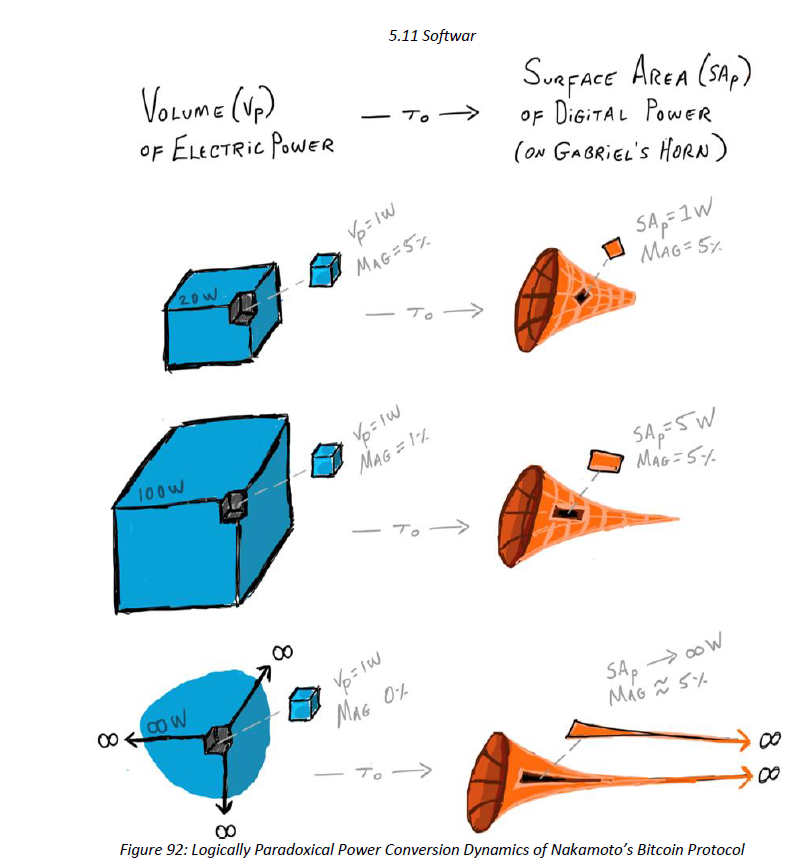 5.11 Softwar
VOLUME (VP)
OF ELECTRIC POWER
— TO →
SURFACE AREA (SAP)
OF DIGITAL POWER
(ON GABRIEL'S HORN)
20W
VP=1W
MAG=5%
— TO →
SAP=1W
MAG=5%
100W
VP=1W
MAG=1%
— TO →
SAP=5W
MAG=5%
∞
∞W
∞
∞
VP=1W
MAG 0%
— TO →
SAP → ∞W
MAG ≈ 5%
∞
∞
Figure 92: Logically Paradoxical Power Conversion Dynamics of Nakamoto's Bitcoin Protocol